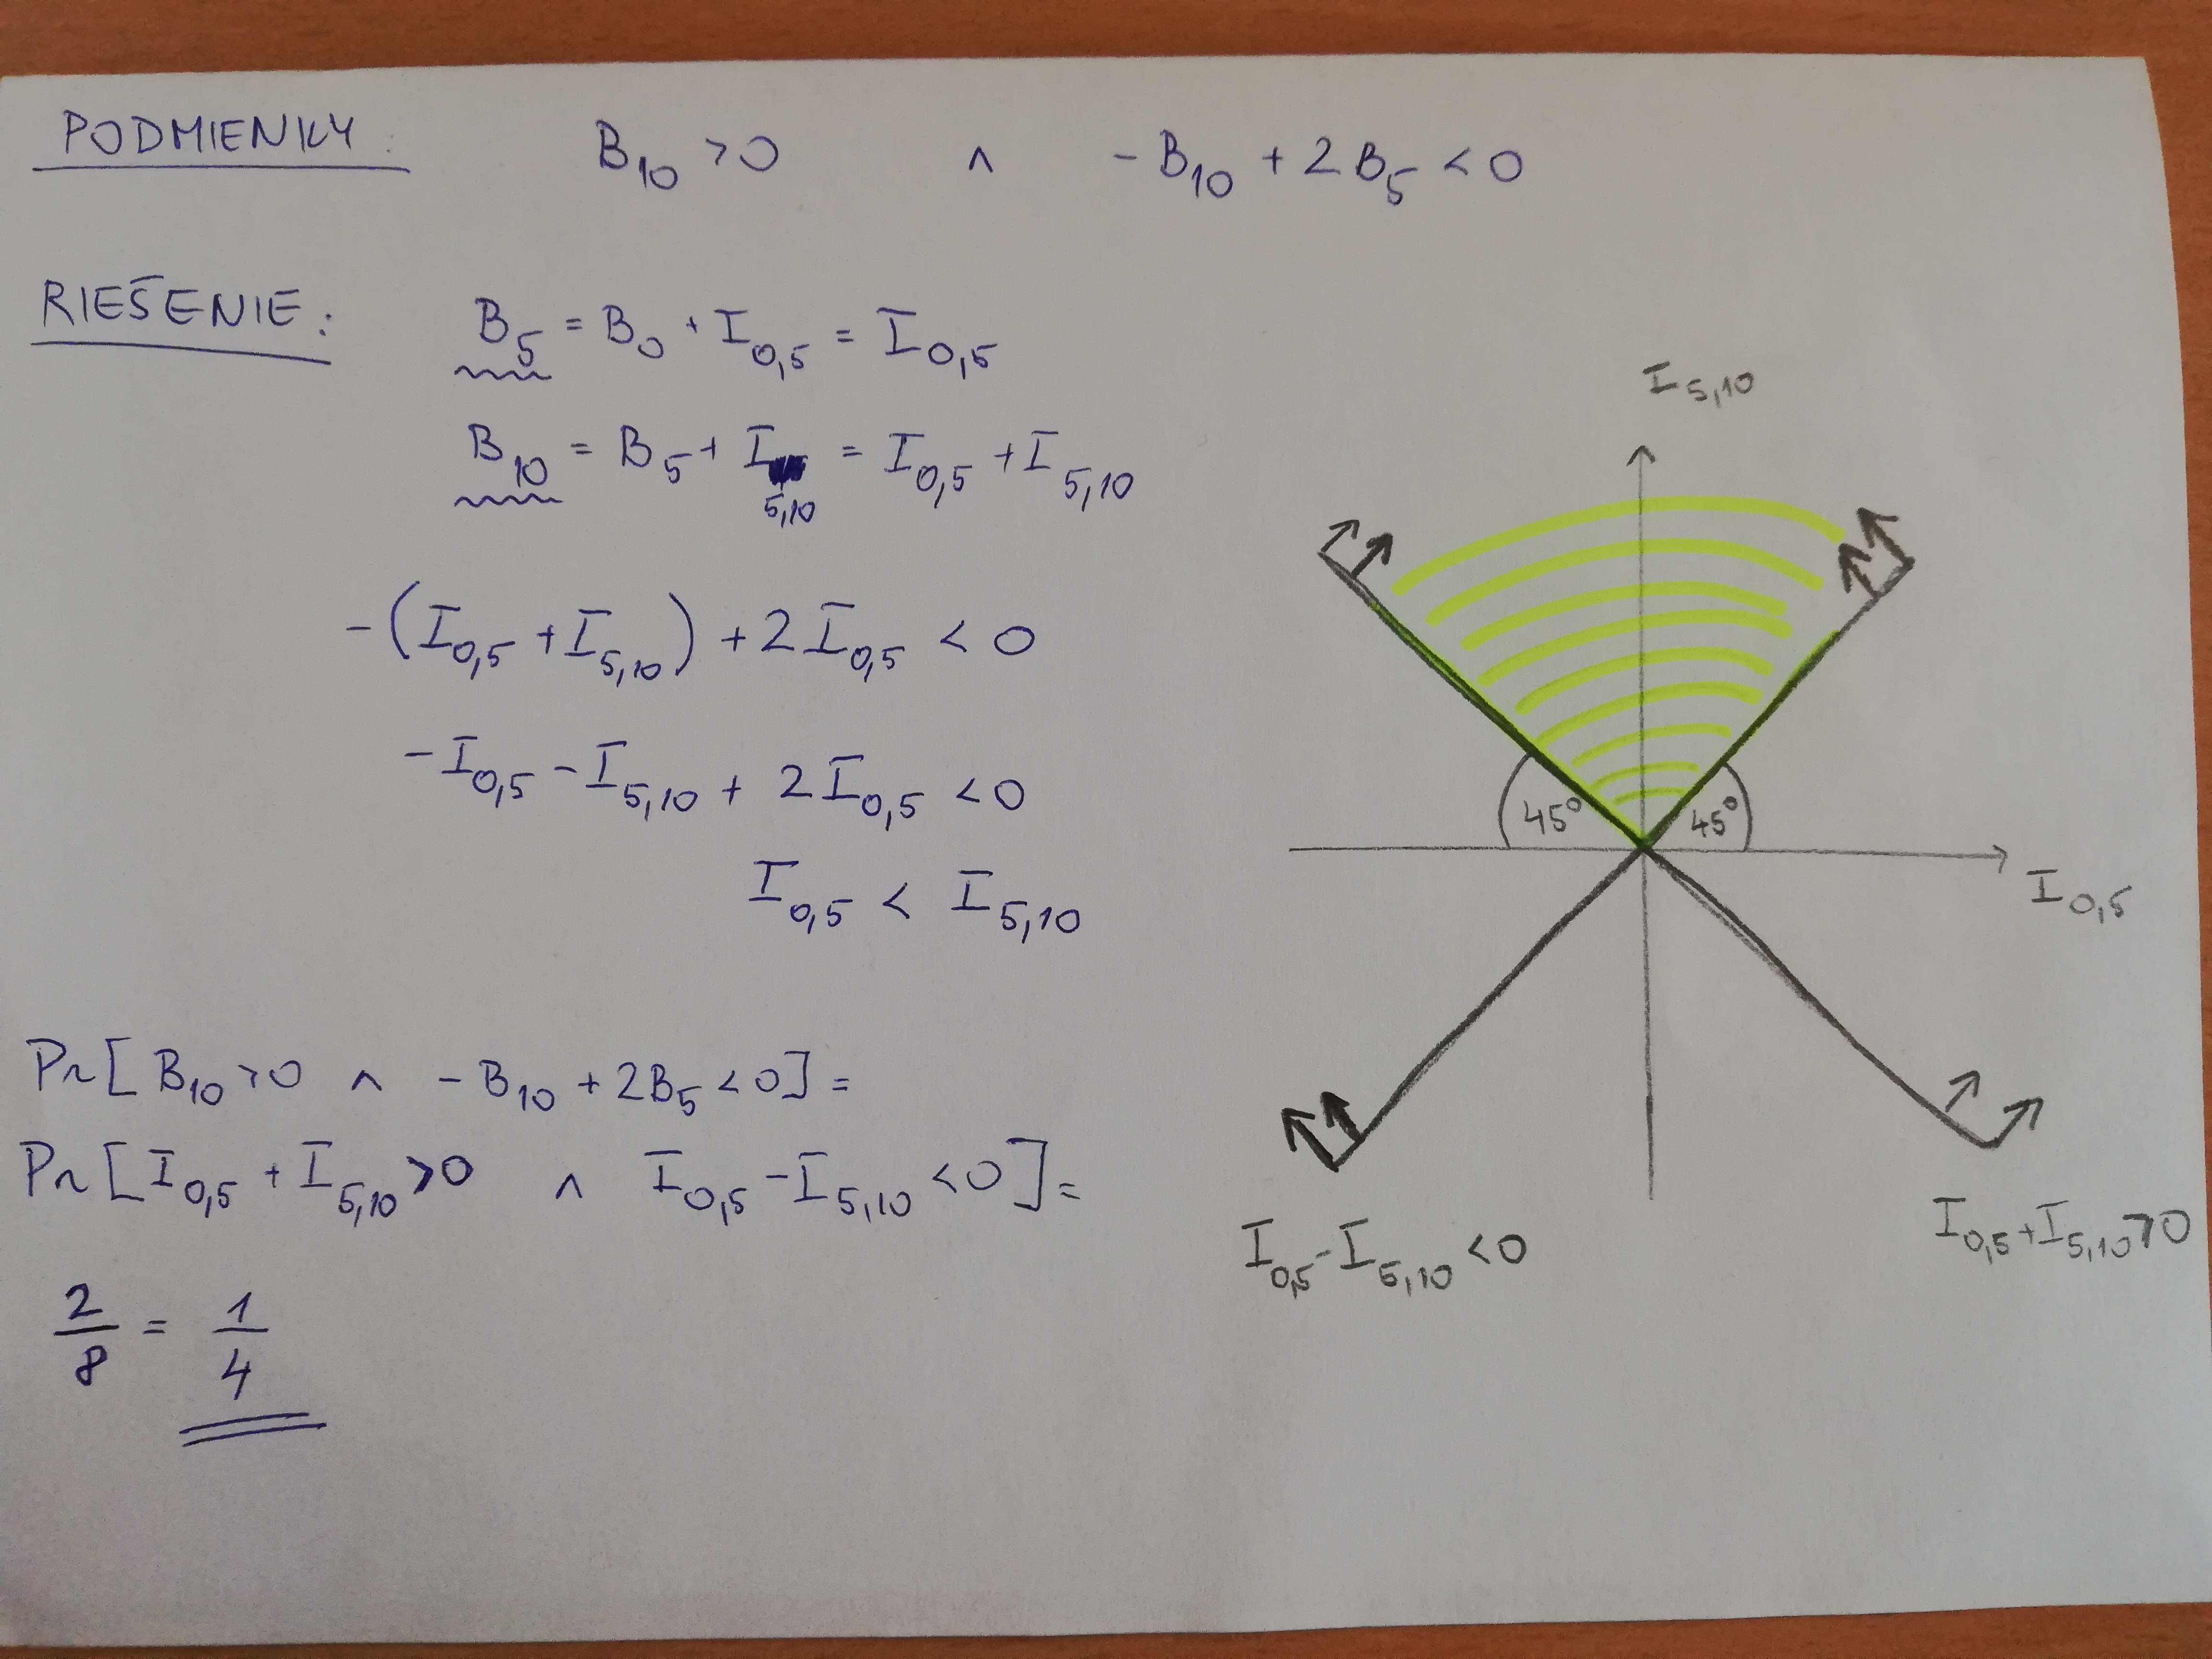 PODMIENKY: B₁₀ > 0 ∧ -B₁₀ + 2B₅ < 0
RIEŠENIE: B₅ = B₀ + I₀,₅ = I₀,₅
B₁₀ = B₅ + I₅,₁₀ = I₀,₅ + I₅,₁₀
-(I₀,₅ + I₅,₁₀) + 2I₀,₅ < 0
-I₀,₅ - I₅,₁₀ + 2I₀,₅ < 0
I₀,₅ < I₅,₁₀
Pr[B₁₀ > 0 ∧ -B₁₀ + 2B₅ < 0] =
Pr[I₀,₅ + I₅,₁₀ > 0 ∧ I₀,₅ - I₅,₁₀ < 0] =
2/8 = 1/4
I₅,₁₀
45° 45°
I₀,₅
I₀,₅ - I₅,₁₀ < 0
I₀,₅ + I₅,₁₀ > 0